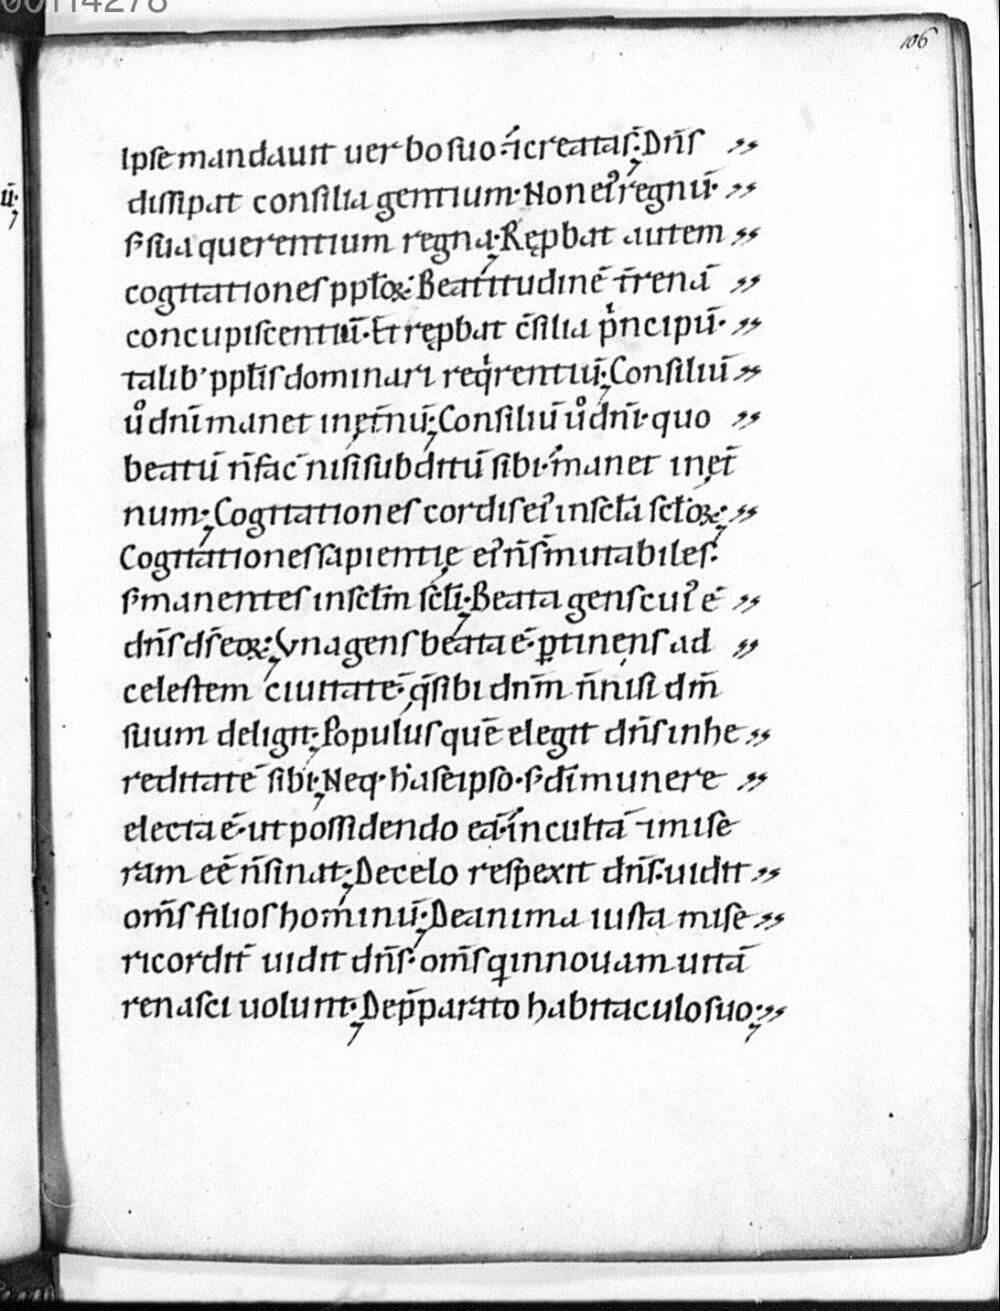 00114278
106
Ipse mandauit uerbo suo ⁊ creata s̄. Dn̄s
dissipat consilia gentium. Non eſ regnū.
s; sua querentium regna. Ręp̄bat autem
cogitationes pp̄loꝝ. Beatitudinē t̄renā
concupiscentiū. Et ręp̄bat c̄silia pⁱncipū.
talib’ pp̄lis dominari reqⁱrentiū. Consiliū
uͦ dn̄i manet inęt̄nū. Consiliū uͦ dn̄i. quo
beatū n̄ fac̄ nisi subditū sibi. manet inęt̄
num. Cogitationes cordis eꝰ in scl̄a scl̄oꝝ.
Cogitationes sapientię eꝰ n̄ s̄ mutabiles.
s; manentes in scl̄m scl̄i. Beata gens cuꝰ ē
dn̄s ds̄ eoꝝ. Vna gens beata ē. ꝑtinens ad
celestem ciuitatē. q̄ sibi dnm̄ n̄ nisi dm̄
suum deligit. Populus quē elegit dn̄s in he
reditatē sibi. Neq. h̄ a se ipso. s; dī munere
electa ē. ut possidendo eā. incultā ⁊ mise
ram eē n̄ sinat. De celo respexit dn̄s. uidit
om̄s filios hominū. De anima iusta mise
ricordit̄ uidit dn̄s. om̄s q in nouam uitā
renasci uolunt. De p̄parato habitaculo suo.